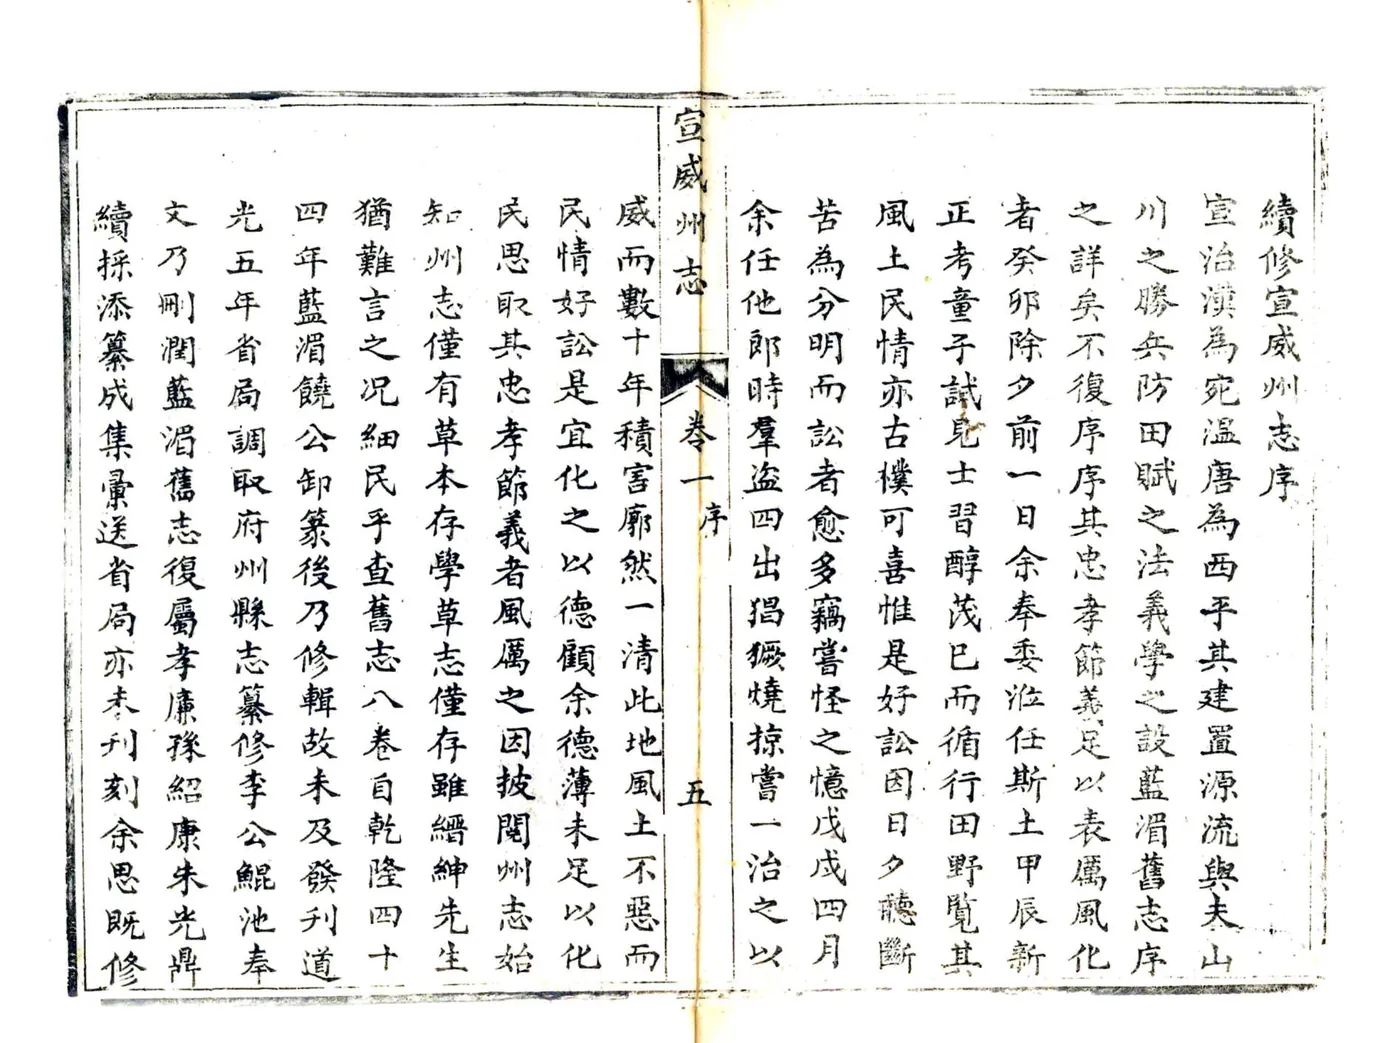 續修宣威州志序
宣治漢為宛溫唐為西平其建置源流與夫山
川之勝兵防田賦之法義學之設藍湄舊志序
之詳矣不復序序其忠孝節義足以表厲風化
者癸卯除夕前一日余奉委涖任斯土甲辰新
正考童子試見士習醇茂已而循行田野覽其
風土民情亦古樸可喜惟是好訟因日夕聽斷
苦為分明而訟者愈多竊嘗怪之憶戊戌四月
余任他郎時羣盜四出猖獗燒掠嘗一治之以
宣威州志
卷一
序
五
威而數十年積害廓然一清此地風土不惡而
民情好訟是宜化之以德顧余德薄未足以化
民思取其忠孝節義者風厲之因披閱州志始
知州志僅有草本存學草志僅存雖縉紳先生
猶難言之况細民乎查舊志八卷自乾隆四十
四年藍湄饒公卸篆後乃修輯故未及發刊道
光五年省局調取府州縣志纂修李公鯤池奉
文乃刪潤藍湄舊志復屬孝廉孫紹康朱光鼎
續採添纂成集彙送省局亦未刊刻余思既修